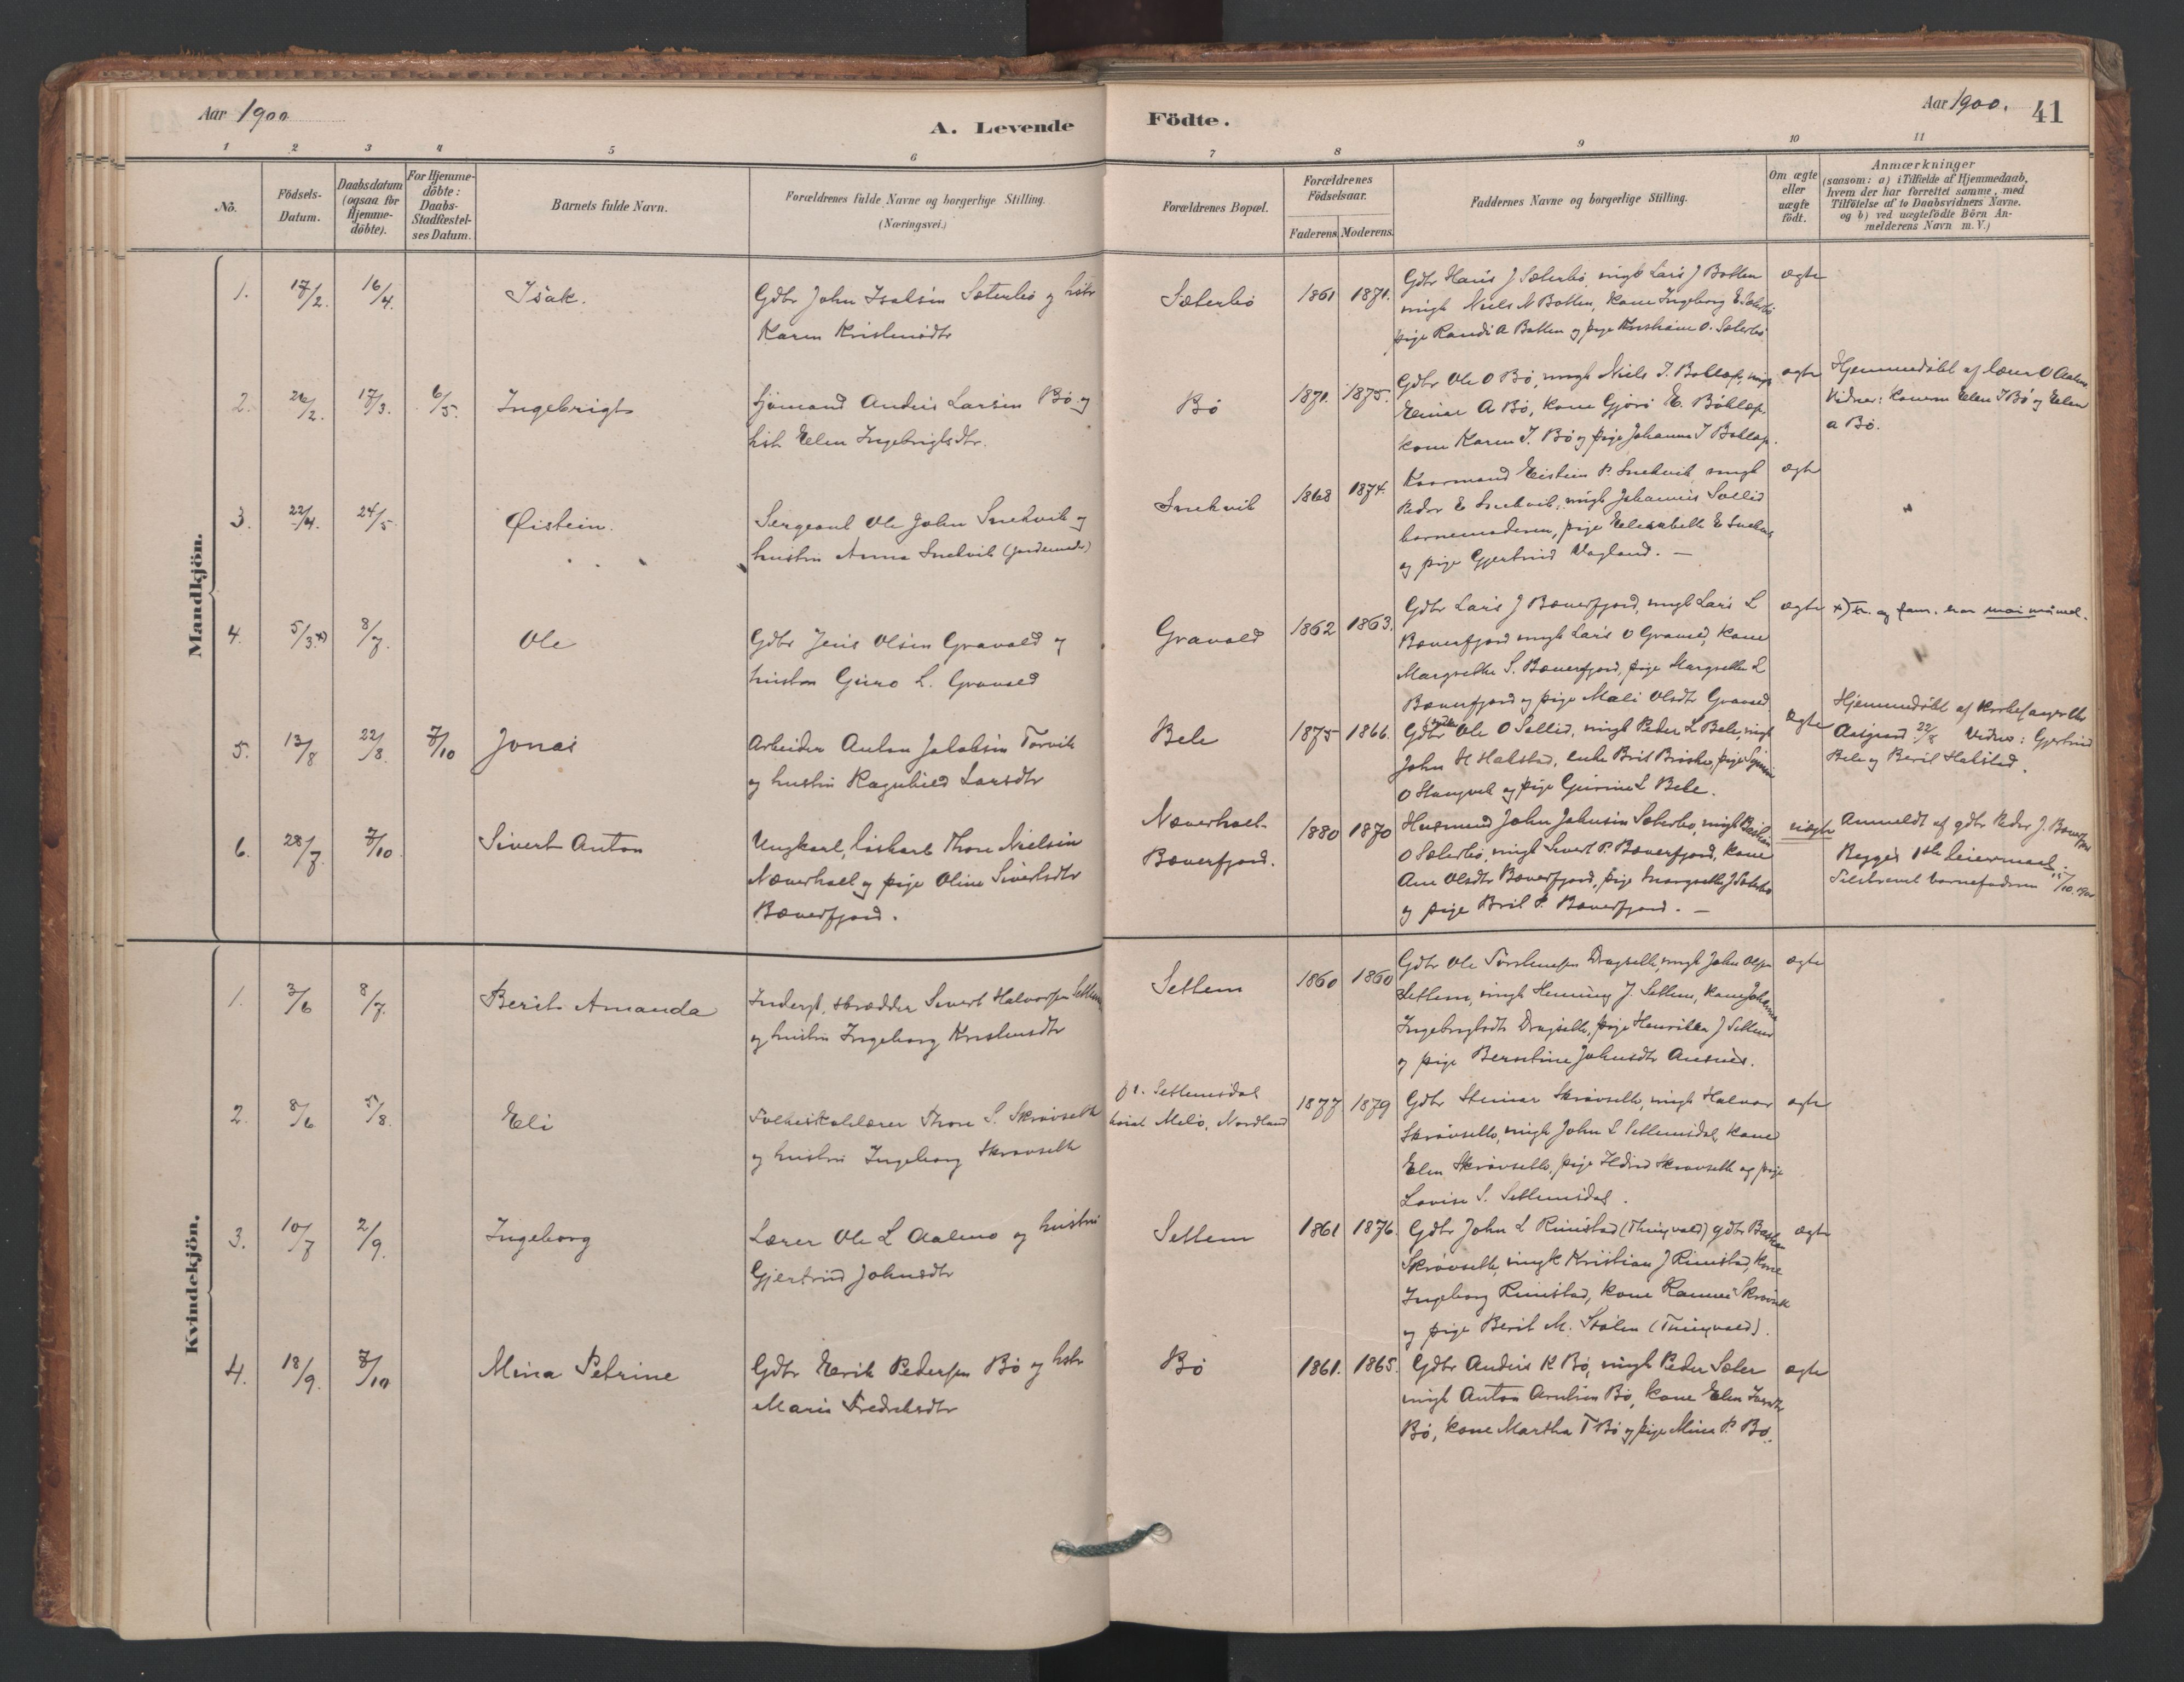 Aar 1900
A. Levende Födte.
Aar 1900. 41
1 2 3 4 5 6 7 8 9 10 11
No.
Födsels-Datum.
Daabsdatum (ogsaa for Hjemme-döbte).
For Hjemme-döbte: Daabs-Stadfestel-ses Datum.
Barnets fulde Navn.
Forældrenes fulde Navne og borgerlige Stilling.
(Næringsvei.)
Forældrenes Bopæl.
Forældrenes Födselsaar.
Faderens. Moderens.
Faddernes Navne og borgerlige Stilling.
Om ægte eller uægte födt.
Anmærkninger
(saasom: a) i Tilfælde af Hjemmedaab,
hvem der har forrettet samme, med
Tilföielse af to Daabsvidners Navne.
og b) ved uægtefödte Börn An-
melderens Navn m.V.)
Mandkjön.
1. 17/2. 16/4. Isak.
Gdbr John Isaksen Sæterbö og hstr
Karen Kristensdtr
Sæterbö 1861 1871.
Gdbr Hans J Sæterbö, ungk Lars J Botten
ungk Niels N Botten, kone Ingeborg E Sæterbö
pige Randi A Botten og pige O. Sæterbö
ægte
2. 26/2. 17/3. 6/5. Ingebrigt
Sjömand Anders Larsen Bö og
hst Elen Ingebrigtsdtr.
Bö 1871. 1875.
Gdbr Ole O Bö, ungk Niels I.
Einar A Bö, kone Gjöri E.
kone Karen I. Bö og pige Johanna I
ægte
Hjemmedöbt af lærer O Aalmo.
Vidner: konerne Elen I Bö og Elen
A Bö.
3. 22/4. 24/5. Öistein.
Sergeant Ole John Snekvik og
hustru Anna Snekvik (jordemoder)
Snekvik 1868 1874.
Kaarmand Eistein P. Snekvik, ungk
Peder E Snekvik, ungk Johannes Sollid
barnemoderen, pige Elisabeth E Snekvik
og pige Gjertrud Vaagland. —
ægte
4. 5/3. x) 8/7. Ole
Gdbr Jens Olsen Gravald og
hustru Guro L. Gravald
Gravald 1862 1863.
Gdbr Lars J Bæverfjord, ungk Lars L
Bæverfjord ungk Lars O Gravald, kone
Margrethe S. Bæverfjord, pige Margrethe L
Bæverfjord og pige Mali Olsdtr Gravald
ægte
5. 13/8 22/8. 7/10 Jonas
Arbeider Anton Jakobsen Torvik
og hustru Ragnhild Larsdtr
Bele 1875 1866.
Gdbr Ole O Sollid, ungk Peder L Bele, ungk
John H Halstad, enke Brit Bröske, pige
O Stangvik og pige Gurine L Bele.
ægte
Hjemmedöbt af kirkesanger Chr
Aasgaard 22/8 Vidner: Gjertrud
Bele og Berit Halstad.
6. 28/7. 7/10 Sivert Anton
Ungkarl, löskarl Thore Nielsen
Næverholt og pige Oline Sivertsdtr
Bæverfjord.
Næverholt-
Bæverfjord.
1880 1870
Husmand John Johnsen Sæterbö, ungk
O Sæterbö, ungk Sivert P. Bæverfjord, kone
Ane Olsdtr Bæverfjord, pige Margrethe J Sæterbö
og pige Brit P. Bæverfjord. —
uægte
Anmeldt af gdbr Peder J. Bæverfjord
Begges 1ste Leiermaal.
Tilskrevet barnefaderen 15/10. 1900
Kvindekjön.
1. 3/6 8/7. Berit Amanda
Inderst, skrædder Sivert Halvorsen Settem
og hustru Ingeborg Kristensdtr
Settem 1860 1860
Gdbr Ole Torstensen Dragseth, ungk John Olsen
Settem, ungk Henning J. Settem, kone Johanna
Ingebrigtsdtr Dragseth, pige Henrikka J Settem
og pige Berntine Johnsdtr Ansnes.
ægte
2. 8/6 5/8. Eli
Folkeskolelærer Thore S. Skrövseth
og hustru Ingeborg Skrövseth
pt. Settemsdal
bosat Melö, Nordland
1877 1879
Gdbr Steinar Skrövseth, ungk Halvor
Skrövseth, ungk John S Settemsdal, kone
Elen Skrövseth, pige Ildrid Skrövseth og pige
Lovise S. Settemsdal.
ægte
3. 10/7 2/9. Ingeborg
Lærer Ole L Aalmo og hustru
Gjertrud Johnsdtr
Settem 1861 1876.
Gdbr John L Rimstad (Thingvold) gdbr
Skrövseth, ungk Kristian J Rimstad, kone
Ingeborg Rimstad, kone Rannei Skrövseth
og pige Berit M. Stölen (Thingvold).
ægte
4. 18/9. 7/10 Mina Petrine
Gdbr Eerik Pedersen Bö og hstr
Marie Fredriksdtr
Bö 1861. 1865.
Gdbr Anders K Bö, ungk Peder Sæter
ungk Anton Arntsen Bö, kone Elen
Bö, kone Martha T Bö og pige Mina P. Bö.
ægte